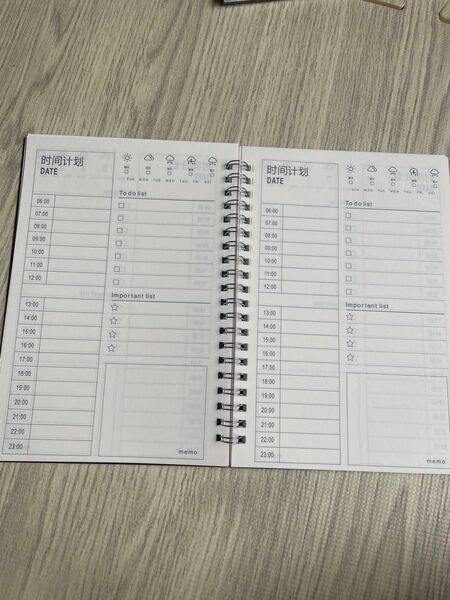 时间计划
DATE
SUN MON TUE WED THU FRI SAT
To do list
06:00
07:00
08:00
09:00
10:00
11:00
12:00
Important list
13:00
14:00
15:00
16:00
17:00
18:00
19:00
20:00
21:00
22:00
23:00
memo
时间计划
DATE
SUN MON TUE WED THU FRI SAT
To do list
06:00
07:00
08:00
09:00
10:00
11:00
12:00
Important list
13:00
14:00
15:00
16:00
17:00
18:00
19:00
20:00
21:00
22:00
23:00
memo